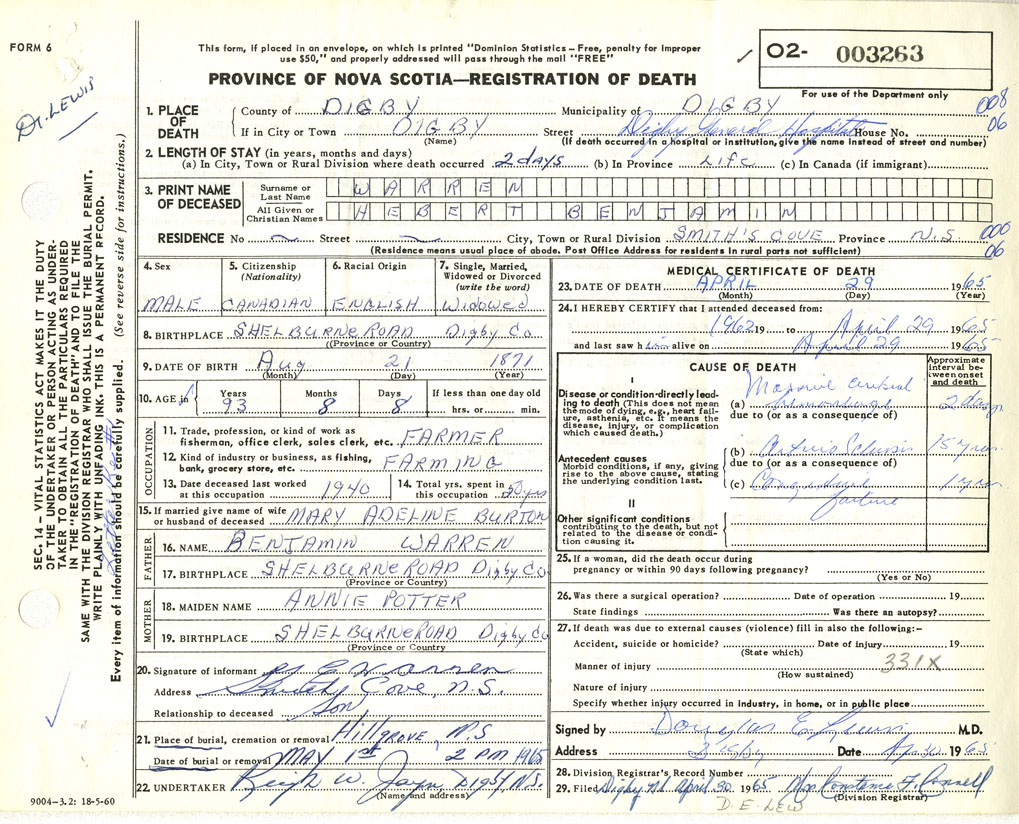 FORM 6
Dr. LEWIS
This form, if placed in an envelope, on which is printed "Dominion Statistics – Free, penalty for improper
use $50," and properly addressed will pass through the mail "FREE"
PROVINCE OF NOVA SCOTIA—REGISTRATION OF DEATH
O2- 003263
For use of the Department only
008
06
1. PLACE OF DEATH
County of DIGBY Municipality of DIGBY
If in City or Town DIGBY Street Digby General Hospital House No.
(Name) (If death occurred in a hospital or institution, give the name instead of street and number)
2. LENGTH OF STAY (in years, months and days)
(a) In City, Town or Rural Division where death occurred 2 days (b) In Province Life (c) In Canada (if immigrant)
3. PRINT NAME OF DECEASED
Surname or Last Name WARREN
All Given or Christian Names HEBERT BENJAMIN
RESIDENCE No Street City, Town or Rural Division SMITH'S COVE Province N.S.
000
06
(Residence means usual place of abode. Post Office Address for residents in rural parts not sufficient)
4. Sex MALE
5. Citizenship (Nationality) CANADIAN
6. Racial Origin ENGLISH
7. Single, Married, Widowed or Divorced (write the word) Widowed
8. BIRTHPLACE SHELBURNE ROAD Digby Co.
(Province or Country)
9. DATE OF BIRTH Aug 21 1871
(Month) (Day) (Year)
10. AGE Years 93 Months 8 Days 8 If less than one day old hrs. or min.
OCCUPATION
11. Trade, profession, or kind of work as
fisherman, office clerk, sales clerk, etc. FARMER
12. Kind of industry or business, as fishing,
bank, grocery store, etc. FARMING
13. Date deceased last worked at this occupation 1940
14. Total yrs. spent in this occupation 50 yrs
15. If married give name of wife
or husband of deceased MARY ADELINE BURTON
FATHER
16. NAME BENJAMIN WARREN
17. BIRTHPLACE SHELBURNE ROAD Digby Co
(Province or Country)
MOTHER
18. MAIDEN NAME ANNIE POTTER
19. BIRTHPLACE SHELBURNE ROAD Digby Co
(Province or Country)
20. Signature of informant Warren
Address Smiths Cove, N.S.
Relationship to deceased Son
21. Place of burial, cremation or removal Hillgrove, N.S
Date of burial or removal MAY 1st 2 PM 1965
22. UNDERTAKER W. Digby, N.S.
(Name and address)
9004–3.2: 18-5-60
MEDICAL CERTIFICATE OF DEATH
23. DATE OF DEATH APRIL 29 1965
(Month) (Day) (Year)
24. I HEREBY CERTIFY that I attended deceased from:
1962 19 to April 29 1965
and last saw him alive on April 29 1965
CAUSE OF DEATH
Approximate interval between onset and death
I
Disease or condition directly leading to death (This does not mean the mode of dying, e.g., heart failure, asthenia, etc. It means the disease, injury, or complication which caused death.)
(a) Massive cerebral hemorrhage 2 days
due to (or as a consequence of)
Antecedent causes
Morbid conditions, if any, giving rise to the above cause, stating the underlying condition last.
(b) Arterio Sclerosis 15 yrs
due to (or as a consequence of)
(c) Congestive failure 1 yr.
II
Other significant conditions
contributing to the death, but not related to the disease or condition causing it.
25. If a woman, did the death occur during
pregnancy or within 90 days following pregnancy?
(Yes or No)
26. Was there a surgical operation? Date of operation 19
State findings Was there an autopsy?
27. If death was due to external causes (violence) fill in also the following:–
Accident, suicide or homicide? Date of injury 19
(State which)
331X
Manner of injury
(How sustained)
Nature of injury
Specify whether injury occurred in industry, in home, or in public place
Signed by Douglas E Lewis M.D.
Address Digby Date Apr 30 1965
28. Division Registrar's Record Number
29. Filed Digby NS April 30 1965 Mrs Constance F. Connell
(Division Registrar)
D. E. LEW
SEC. 14 – VITAL STATISTICS ACT MAKES IT THE DUTY
OF THE UNDERTAKER OR PERSON ACTING AS UNDER-
TAKER TO OBTAIN ALL THE PARTICULARS REQUIRED
IN THE "REGISTRATION OF DEATH" AND TO FILE THE
SAME WITH THE DIVISION REGISTRAR WHO SHALL ISSUE THE BURIAL PERMIT.
WRITE PLAINLY WITH UNFADING INK. THIS IS A PERMANENT RECORD.
Every item of information should be carefully supplied. (See reverse side for instructions.)